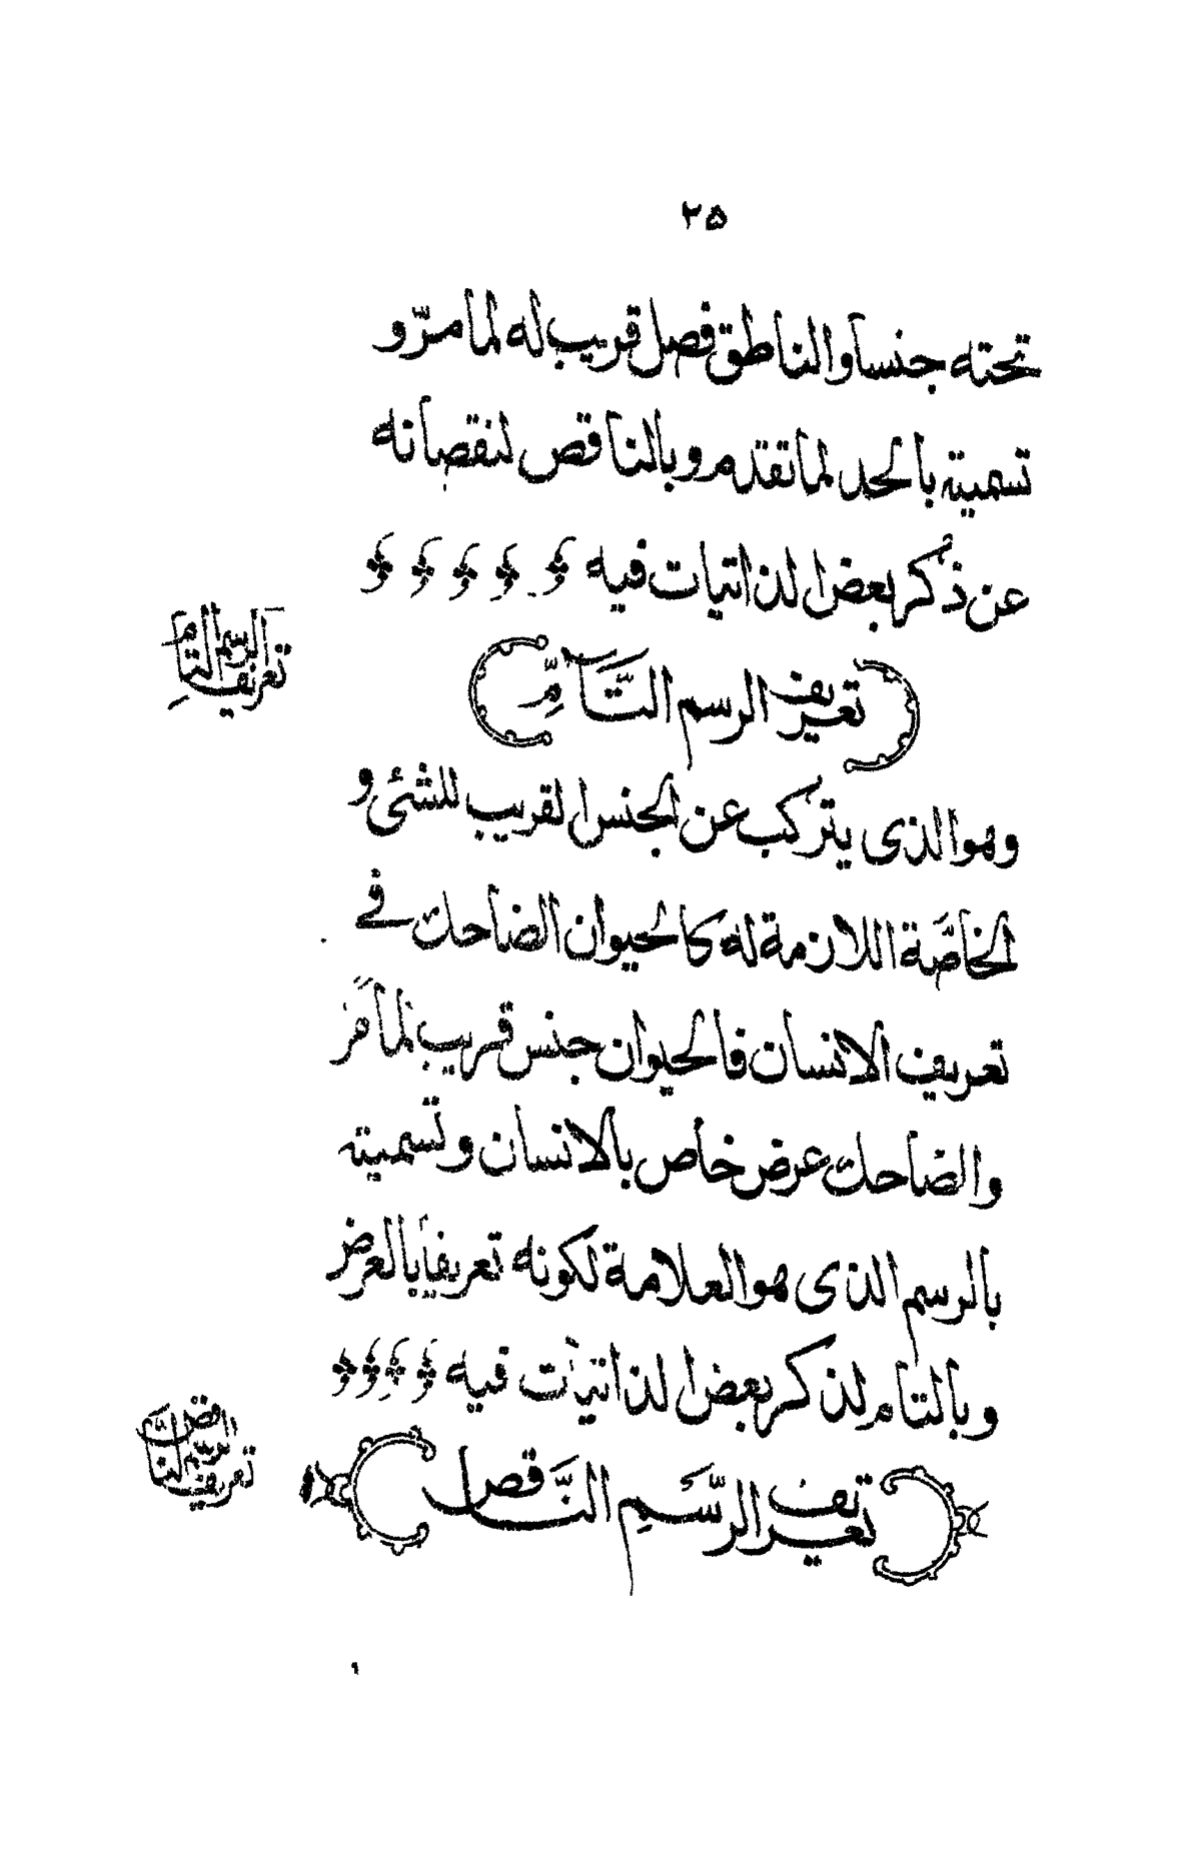 ٢۵
تحته جنسا والناطق فصل قريب له لما مرّ و
تسميته بالحد لما تقدم وبالناقص لنقصانه
عن ذكر بعض الذاتيات فيه
تعريف الرسم التام
تعريف الرسم التَّامِّ
وهو الذى يتركب عن الجنس القريب للشئ و
الخاصَّة اللازمة له كالحيوان الضاحك فے
تعريف الانسان فالحيوان جنس قريب لما مر
والضاحك عرض خاص بالانسان وتسميته
بالرسم الذى هو العلامة لكونه تعريفا بالعرض
وبالتام لذكر بعض الذاتيات فيه
تعريف الرسم الناقص
تعريف الرَّسَمِ النَّاقص